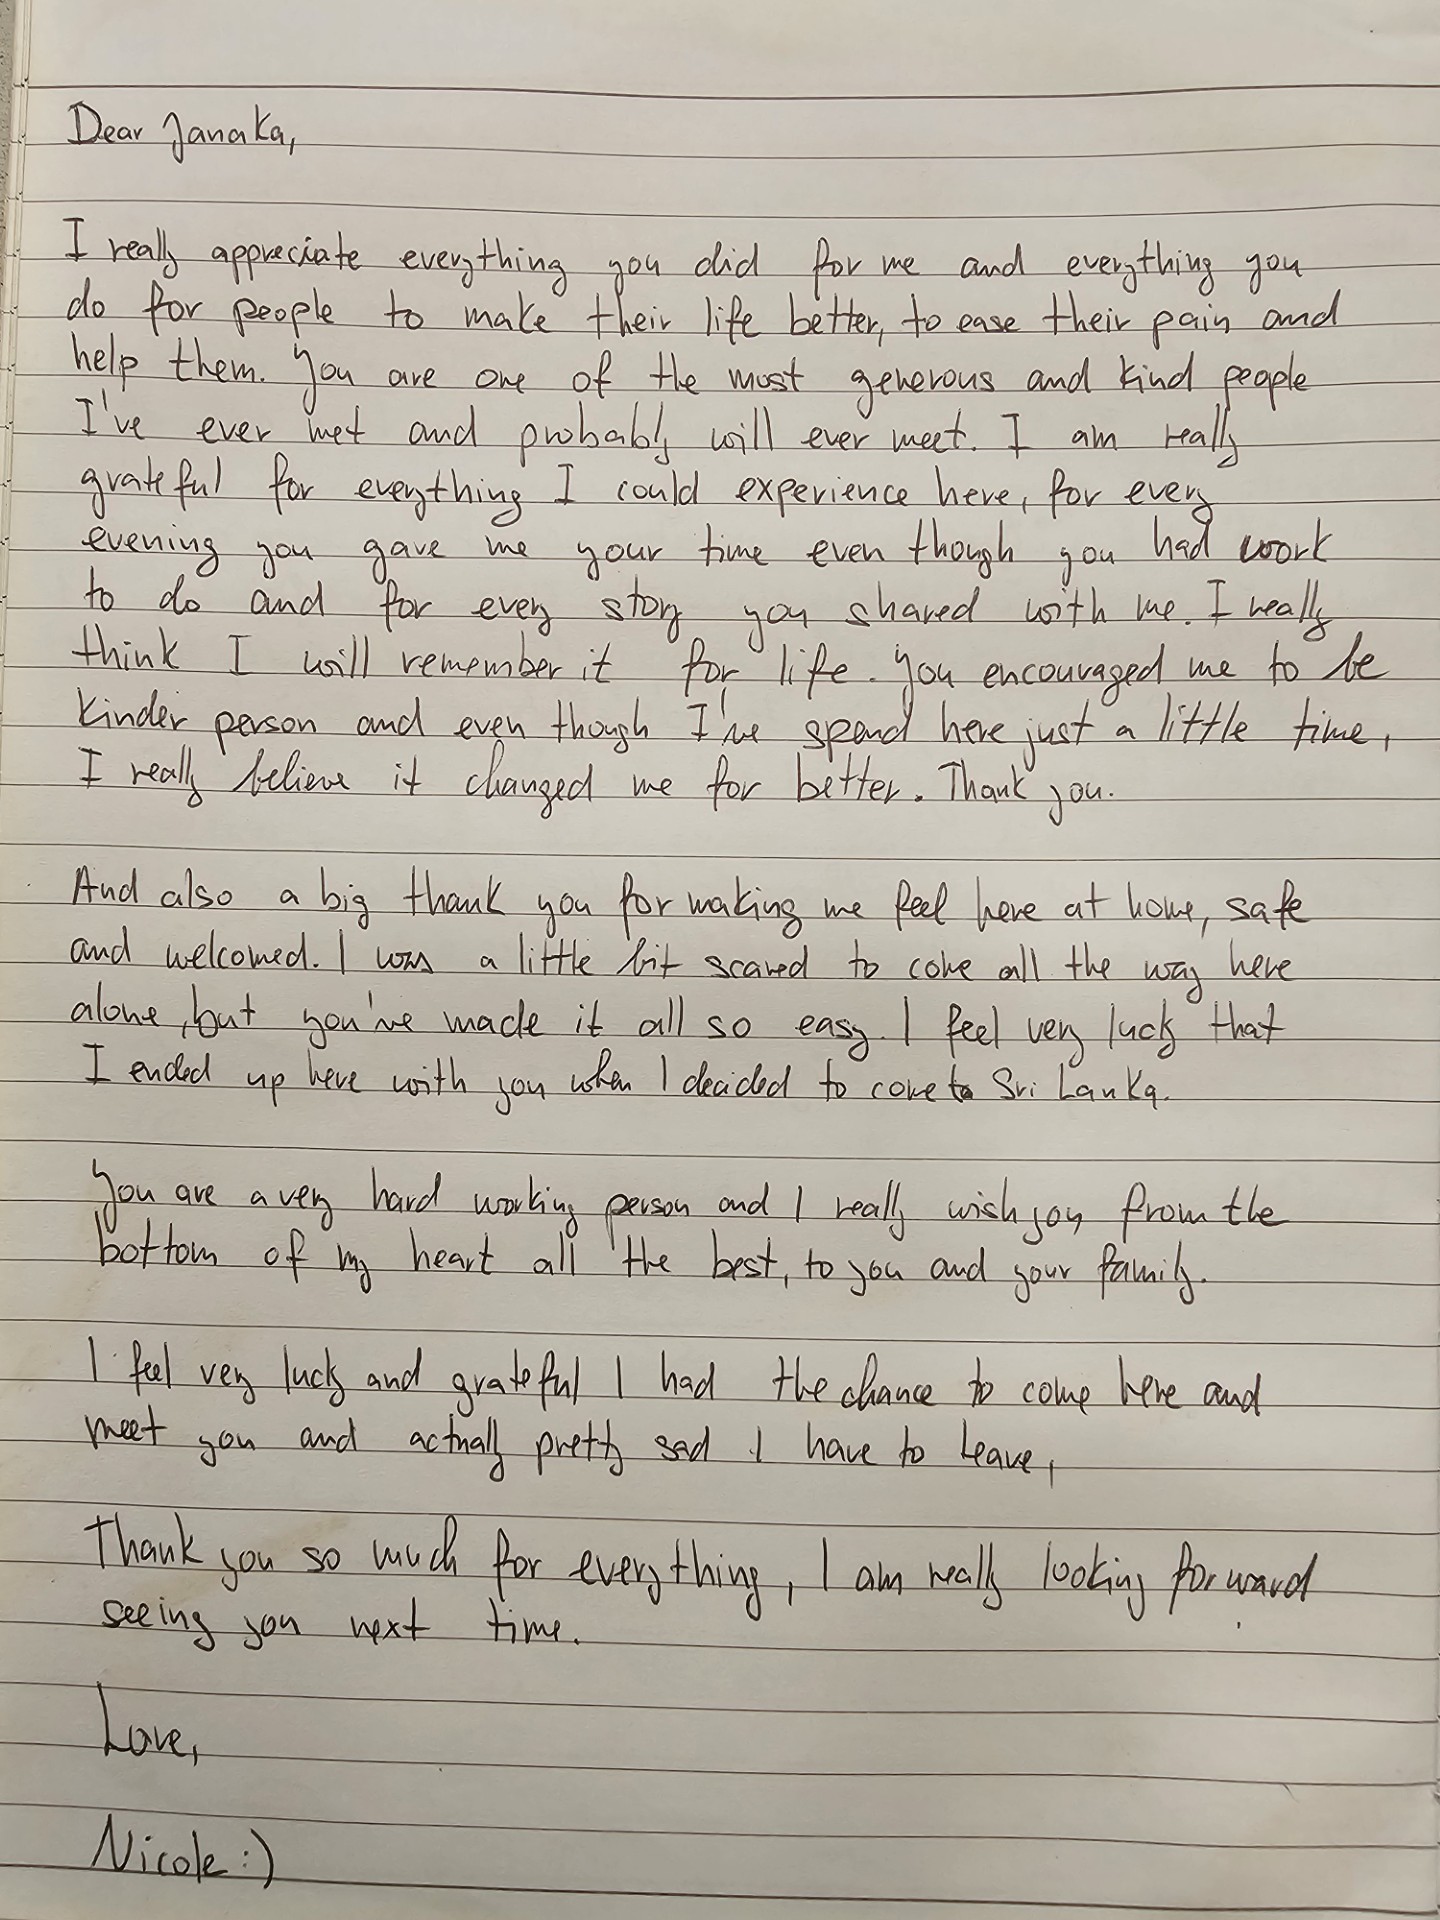 Dear Janaka,
I really appreciate everything you did for me and everything you
do for people to make their life better, to ease their pain and
help them. You are one of the most generous and kind people
I've ever met and probably will ever meet. I am really
grateful for everything I could experience here, for every
evening you gave me your time even though you had work
to do and for every story you shared with me. I really
think I will remember it for life. You encouraged me to be
kinder person and even though I've spend here just a little time,
I really believe it changed me for better. Thank you.
And also a big thank you for making me feel here at home, safe
and welcomed. I was a little bit scared to come all the way here
alone, but you've made it all so easy. I feel very lucky that
I ended up here with you when I decided to come to Sri Lanka.
You are a very hard working person and I really wish you from the
bottom of my heart all the best, to you and your family.
I feel very lucky and grateful I had the chance to come here and
meet you and actually pretty sad I have to leave,
Thank you so much for everything, I am really looking forward
seeing you next time.
Love,
Nicole :)